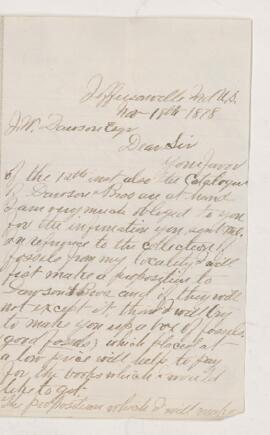 Jeffersonville Ind U.S.
Nov 18th 1878
J.W. Dawson Esqr
Dear Sir
Your favor
of the 12th inst also the Catalogue
of Dawson Bros are at hand
I am very much obliged to you
for the information you sent me
in refrence to the collection of
fossils from my locality I will
first make a proposition to
Dawson Bros and if they will
not except it, then I will try
to make you up a box of fossils
(good fossils) which placed at
a low price will help to pay
for the books which I would
like to get.
The proposition which I will make